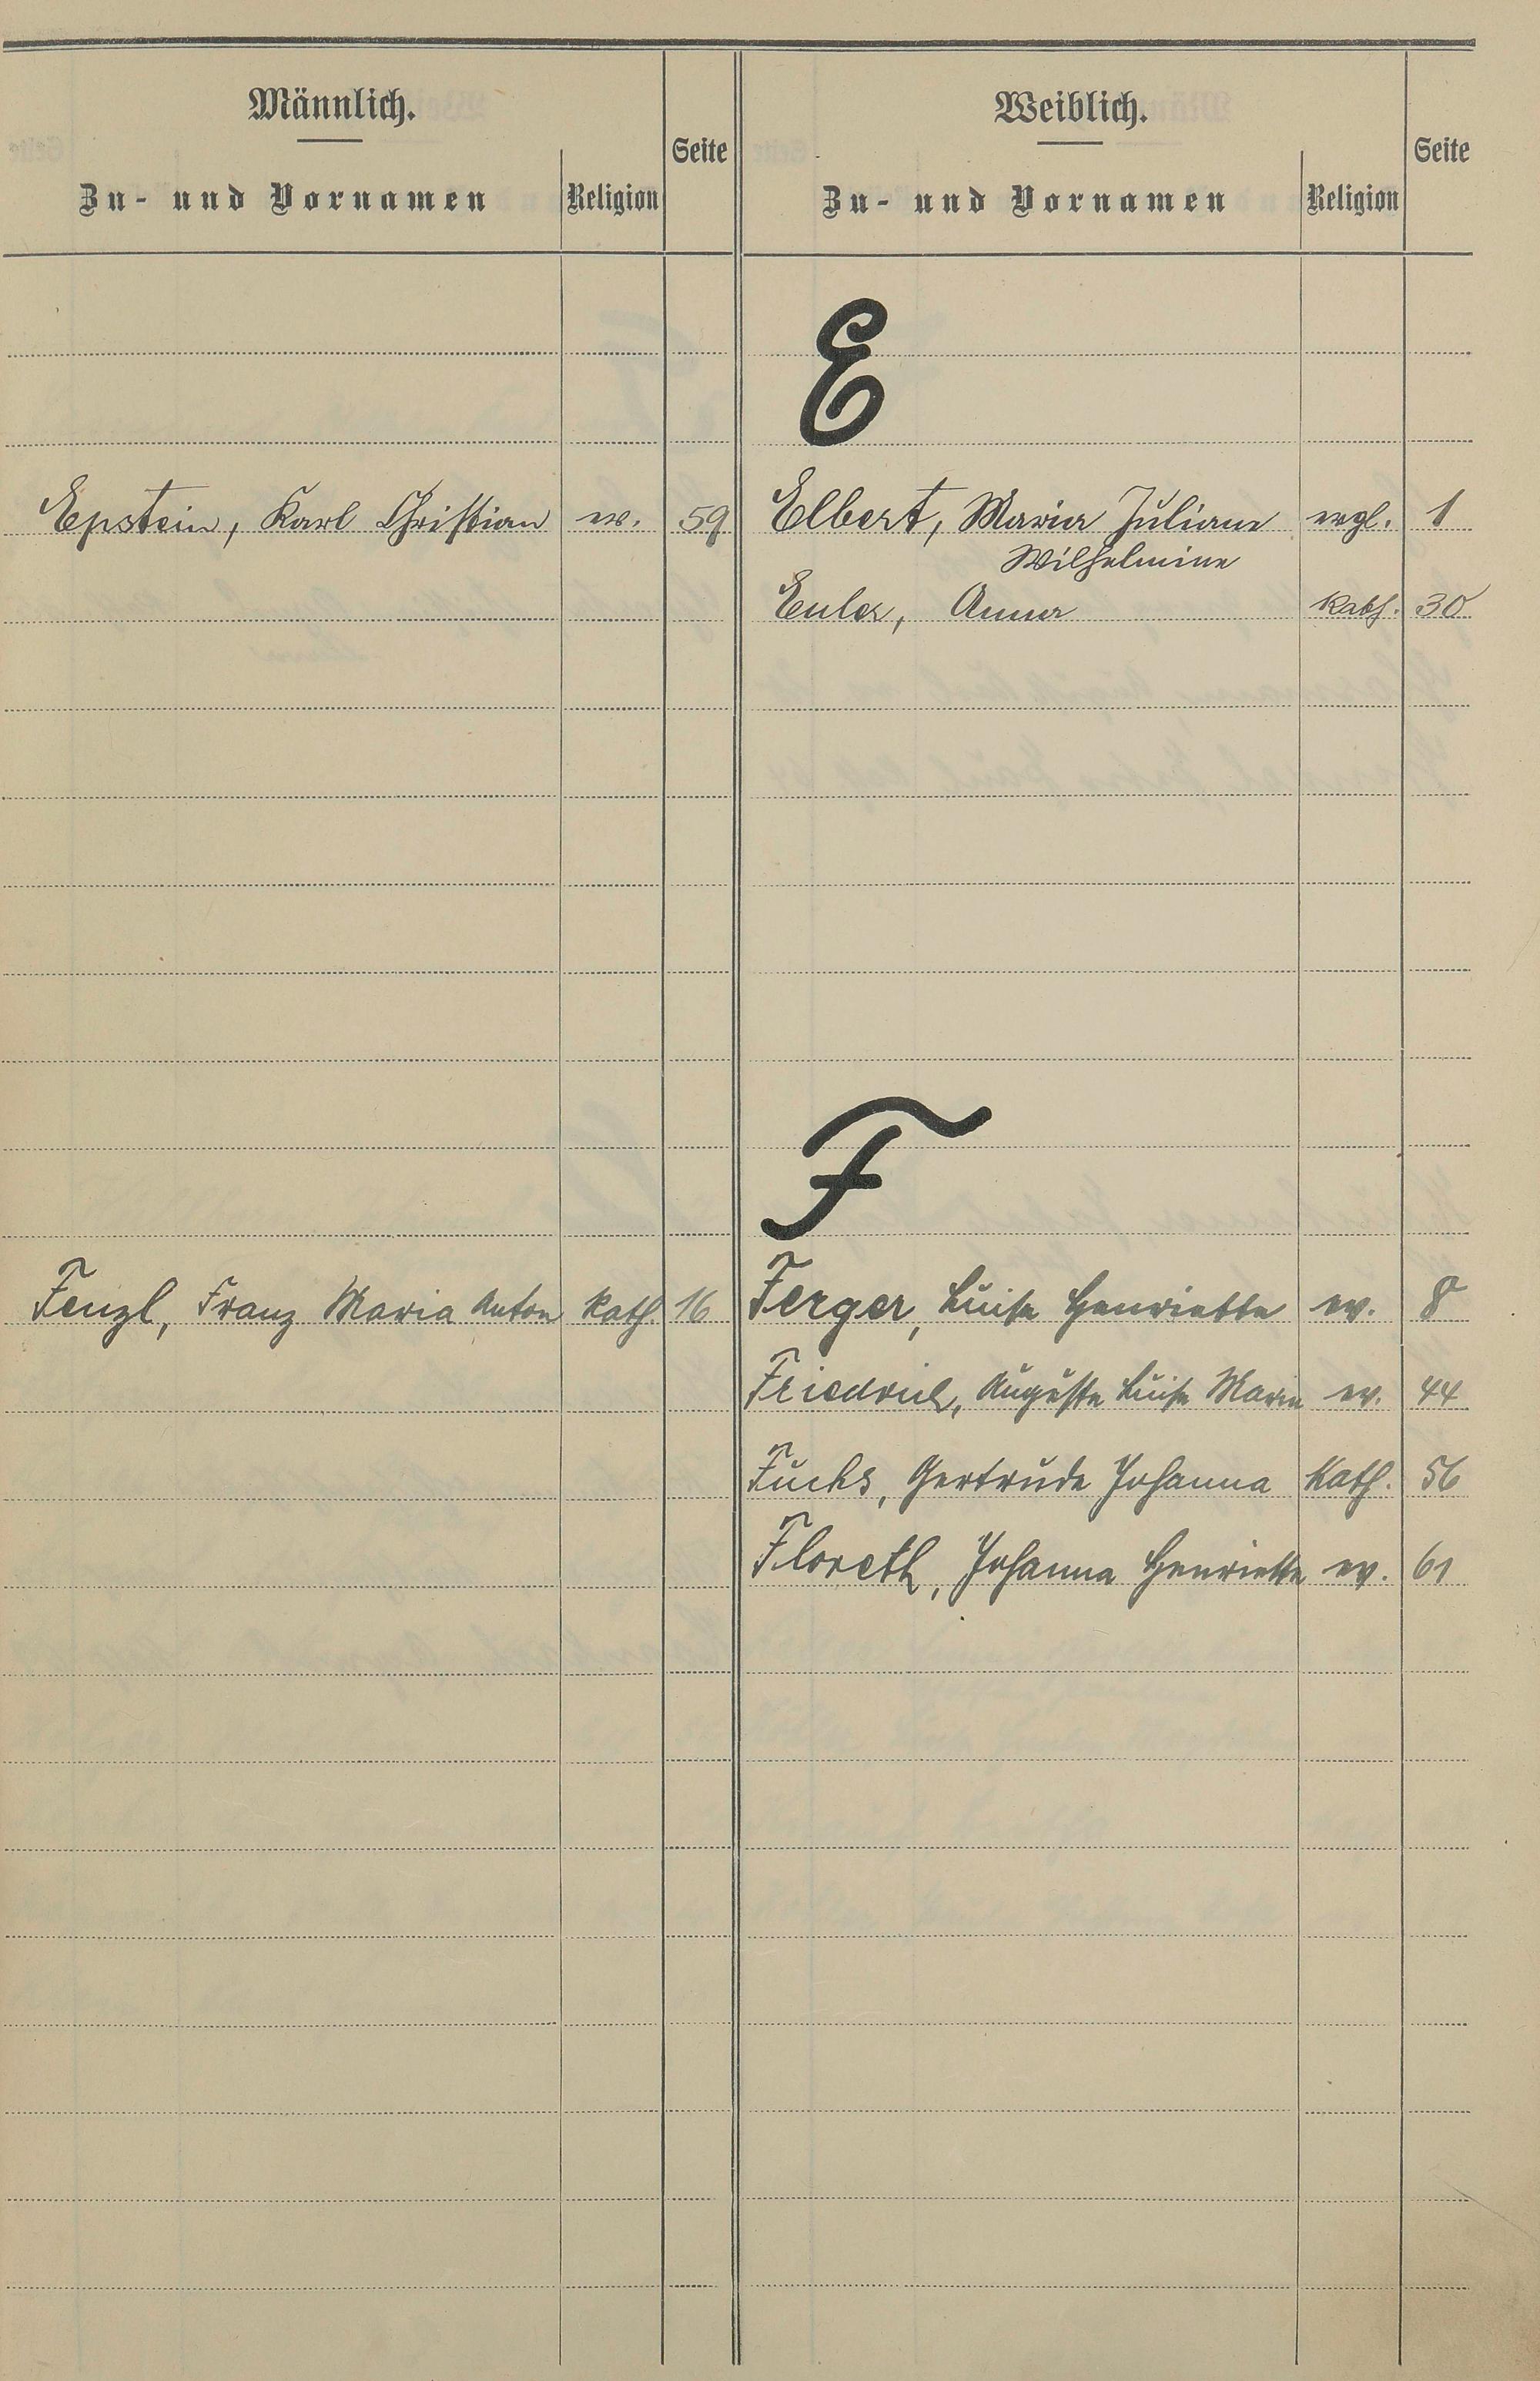 Männlich.
Zu- und Vornamen Religion Seite
Weiblich.
Zu- und Vornamen Religion Seite
E
Epstein, Karl Christian ev. 59 Elbert, Maria Juliane evgl. 1
Wilhelmine
Euler, Anna kath. 30
F
Fenzl, Franz Maria Anton kath. 16 Ferger, Luise Henriette ev. 8
Friedrich, Auguste Luise Marie ev. 44
Fuchs, Gertrude Johanna Kath. 56
Floreth, Johanna Henriette ev. 61